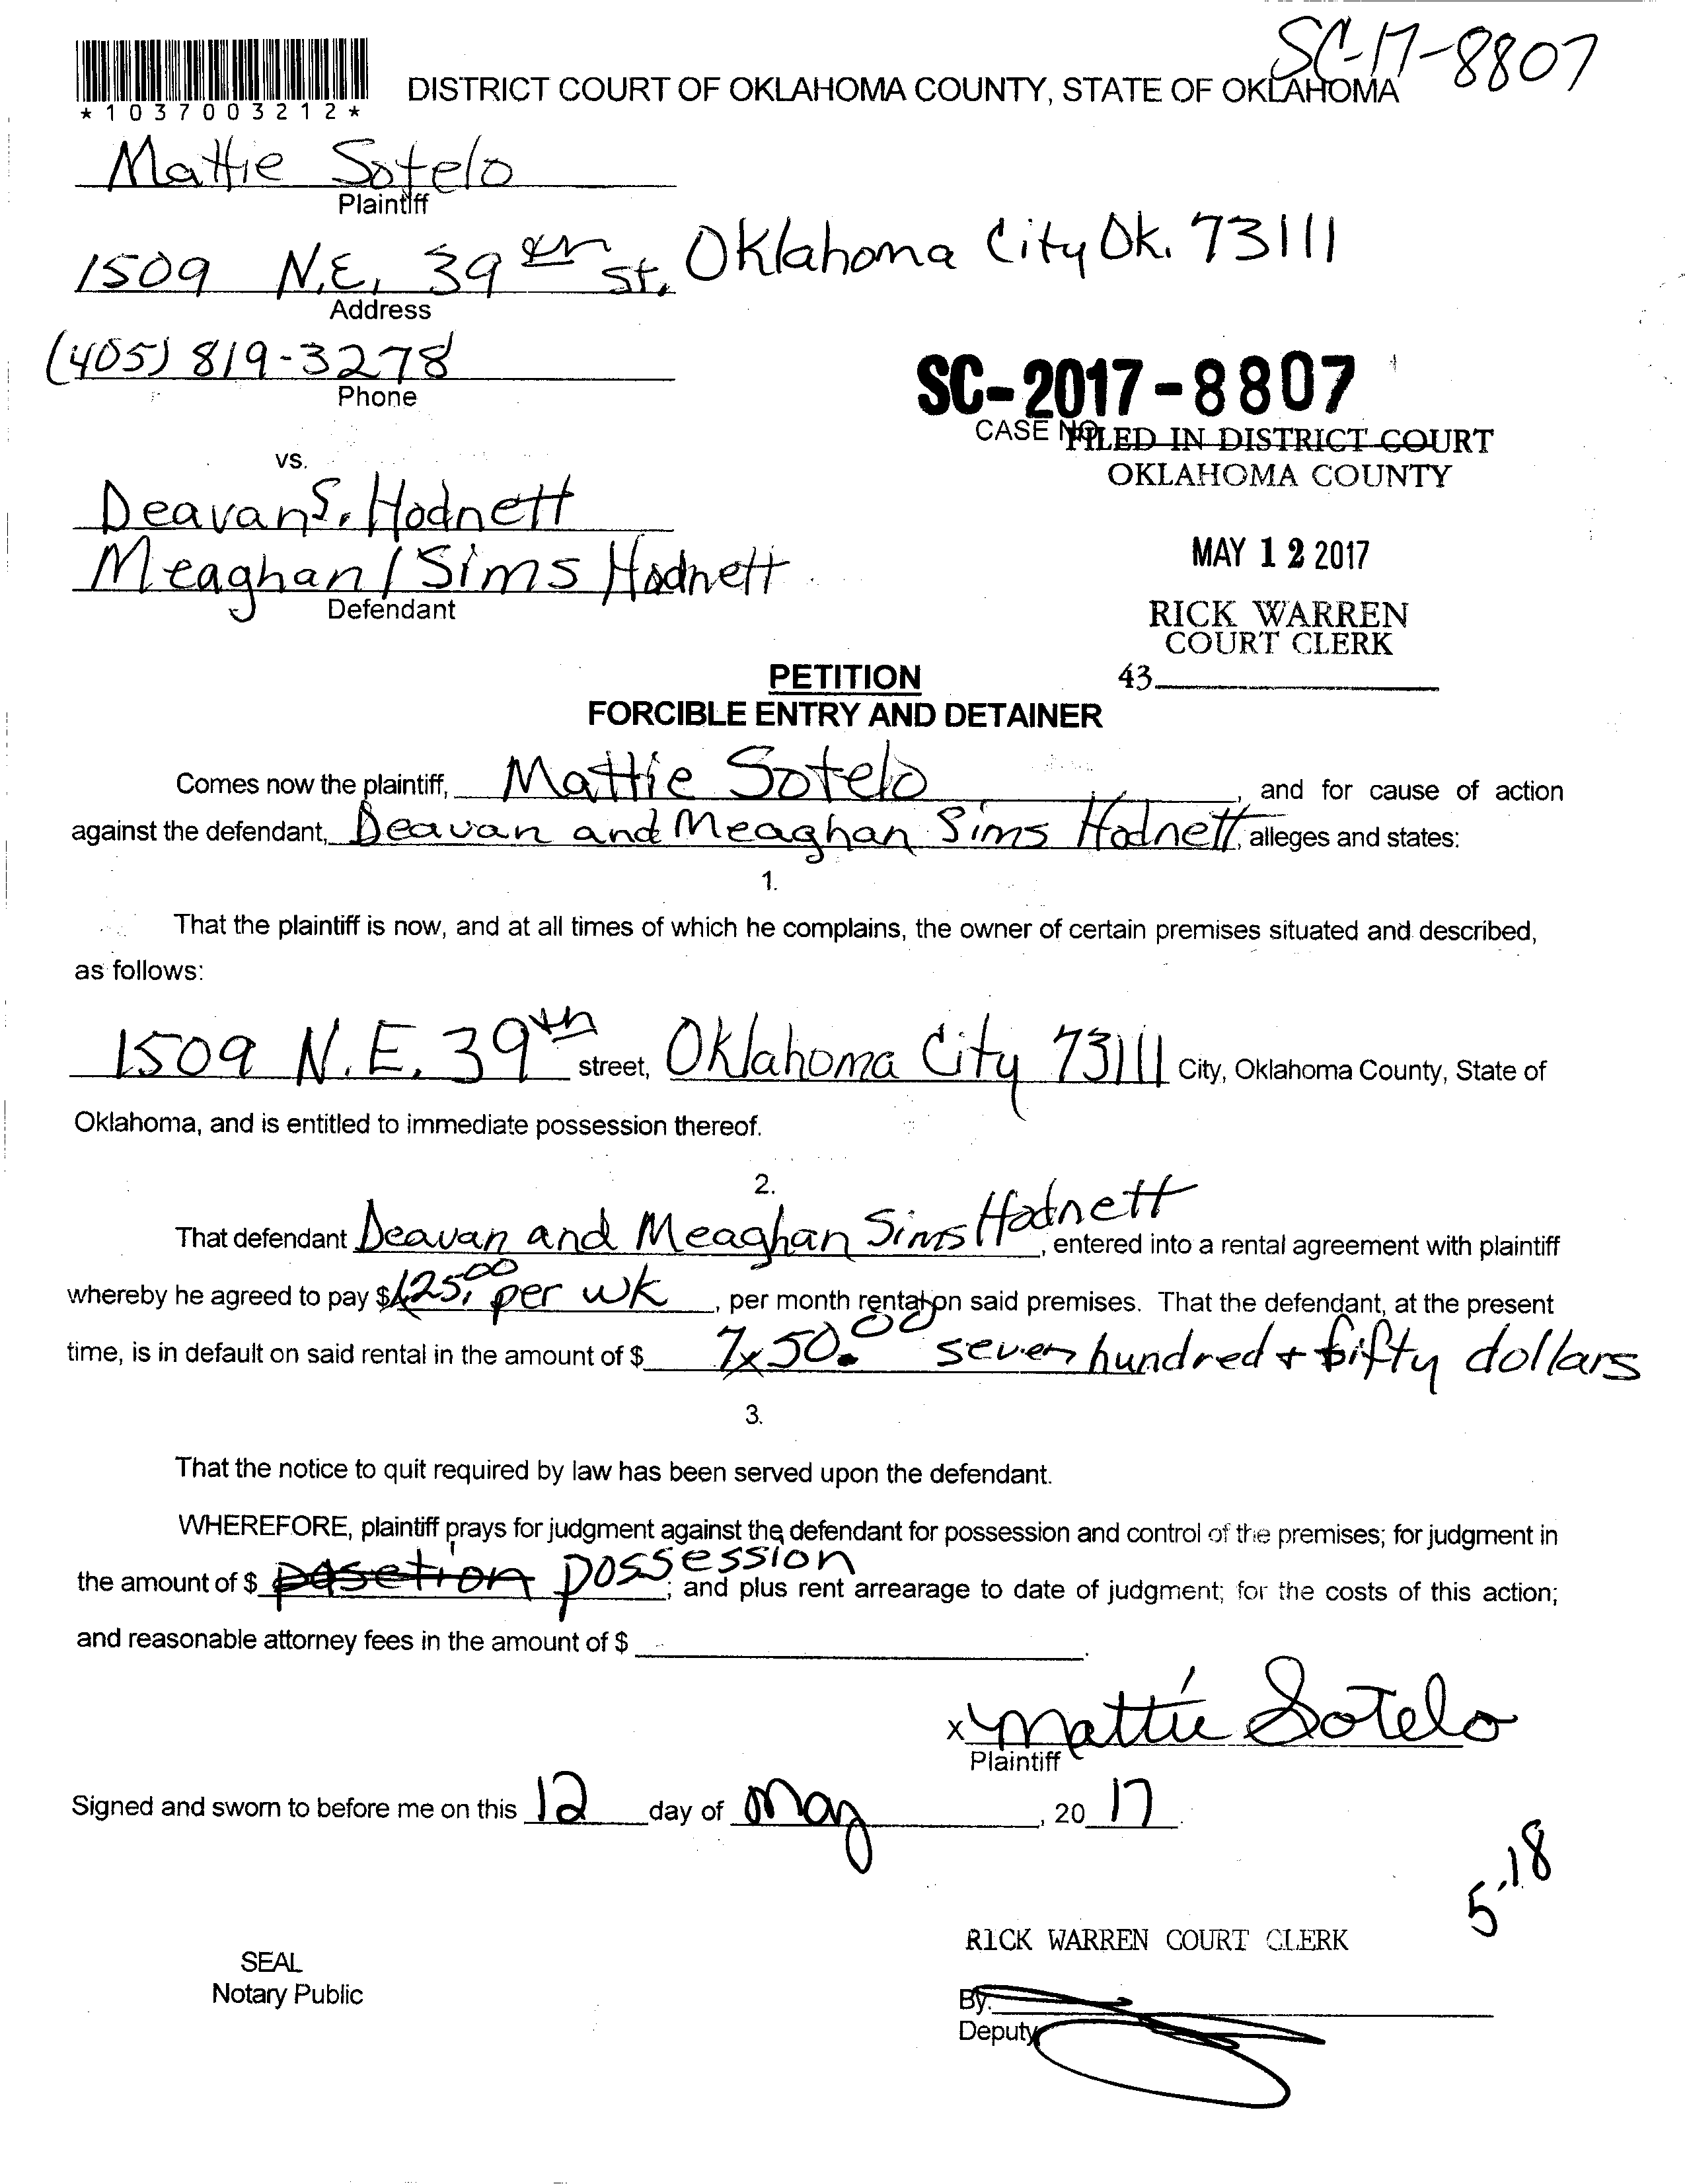 SC-17-8807
*1037003212*
DISTRICT COURT OF OKLAHOMA COUNTY, STATE OF OKLAHOMA
Mattie Sotelo
Plaintiff
1509 N.E. 39th st. Oklahoma City Ok. 73111
Address
(405) 819-3278
Phone
SC-2017-8807
CASE NO.
FILED IN DISTRICT COURT
OKLAHOMA COUNTY
vs.
Deavan S. Hodnett
MAY 12 2017
Meaghan / Sims Hodnett
Defendant
RICK WARREN
COURT CLERK
43
PETITION
FORCIBLE ENTRY AND DETAINER
Comes now the plaintiff, Mattie Sotelo, and for cause of action
against the defendant, Deavan and Meaghan Sims Hodnett, alleges and states:
1.
That the plaintiff is now, and at all times of which he complains, the owner of certain premises situated and described,
as follows:
1509 N.E. 39th street, Oklahoma City 73111 City, Oklahoma County, State of
Oklahoma, and is entitled to immediate possession thereof.
2.
That defendant Deavan and Meaghan Sims Hodnett, entered into a rental agreement with plaintiff
whereby he agreed to pay $125.00 per wk, per month rental on said premises. That the defendant, at the present
time, is in default on said rental in the amount of $ 750.00 seven hundred + fifty dollars
3.
That the notice to quit required by law has been served upon the defendant.
WHEREFORE, plaintiff prays for judgment against the defendant for possession and control of the premises; for judgment in
the amount of $ pasetion possession; and plus rent arrearage to date of judgment; for the costs of this action;
and reasonable attorney fees in the amount of $ .
x Mattie Sotelo
Plaintiff
Signed and sworn to before me on this 12 day of May, 20 17
5-18
RICK WARREN COURT CLERK
SEAL
Notary Public
By:
Deputy